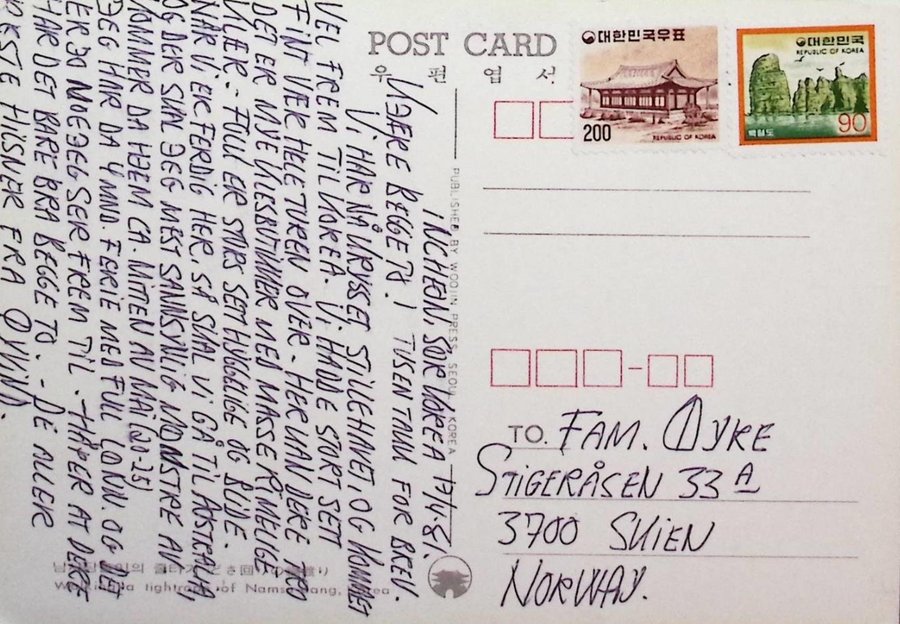 POST CARD
우 편 엽 서
대한민국우표
200
REPUBLIC OF KOREA
대한민국
REPUBLIC OF KOREA
백령도
90
INCHEIN, SØR KOREA 17/4-81.
KJÆRE BEGGE TO! TUSEN TAKK FOR BREV.
VI HAR NÅ KRYSSET STILEHAVET, OG KOMMET
VEL FREM TIL KOREA. VI HADDE STORT SETT
FINT VÆR HELE TUREN OVER. HER KAN DERE TRO
DET ER MYE KLESBUTIKKER MED MASSE RIMELIGE
KLÆR. FOLK ER STORT SETT HYGGELIGE OG BLIDE.
NÅR VI ER FERDIG HER, SÅ SKAL VI GÅ TIL
OG DER SKAL JEG MEST SANNSYNLIG MØNSTRE AV
KOMMER DA HJEM CA. MITEN AV MAI (20-25)
JEG HAR DA 4 MND. FERIE MED FULL LØNN. OG DET
ER JO NOE JEG SER FREM TIL. HÅPER AT DERE
HAR DET BARE BRA BEGGE TO. - DE ALLER
BESTE HILSNER FRA ØYVIND.
PUBLISHED BY WOOJIN PRESS, SEOUL, KOREA
TO. FAM. ØYKE
STIGERÅSEN 33 A
3700 SKIEN
NORWAY.
tightrope of Namsadang, Korea